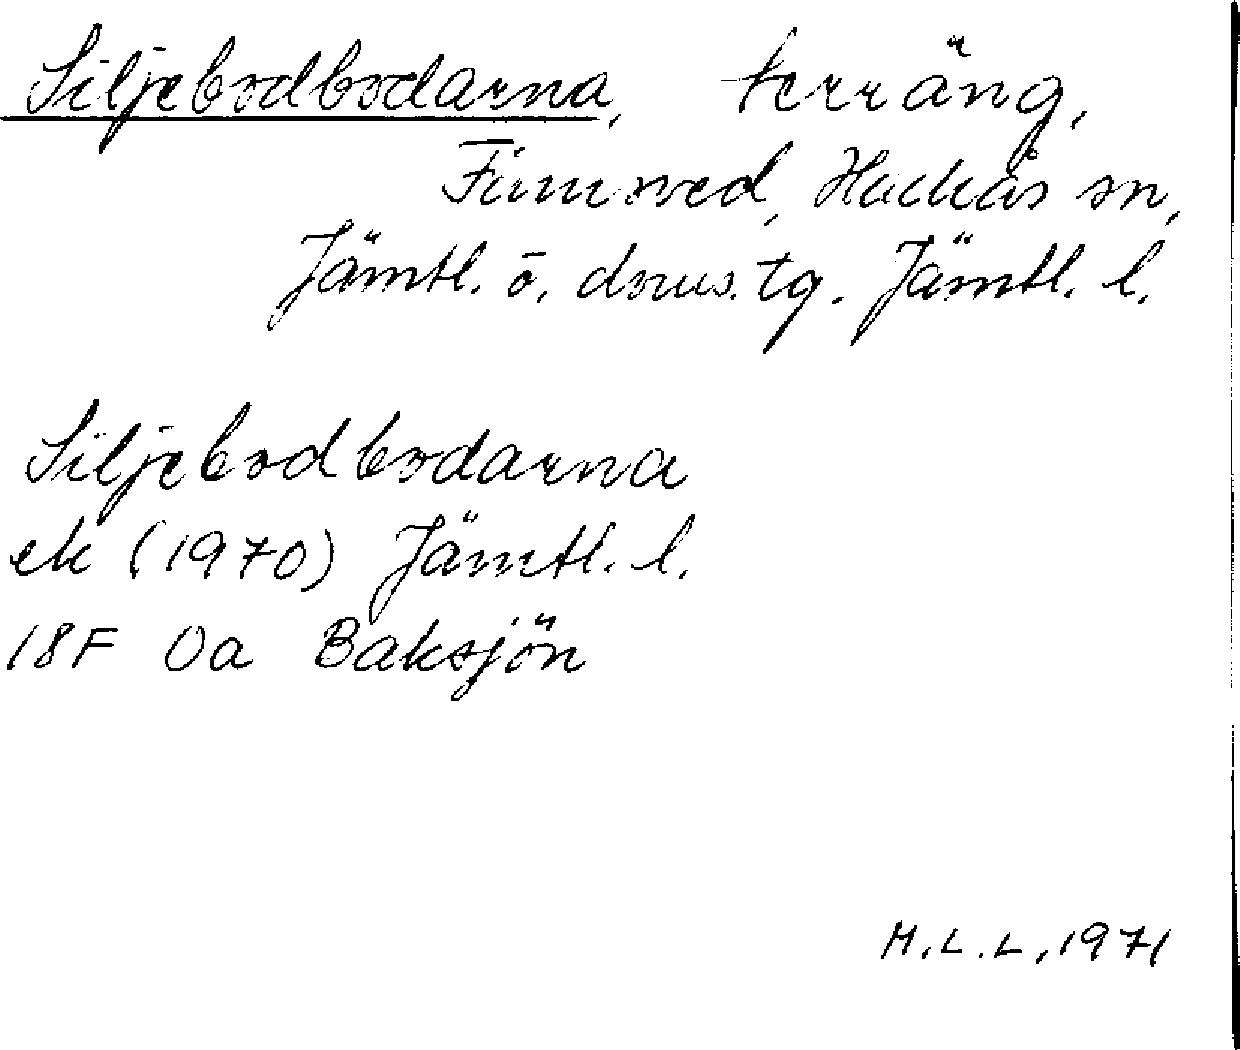 Siljebodbodarna, terräng,
Finnsved, Hackås sn,
Jämtl. ö. doms. tg. Jämtl. l.
Siljebodbodarna
ek (1970) Jämtl. l.
18F 0a Baksjön
H.L.L., 1971